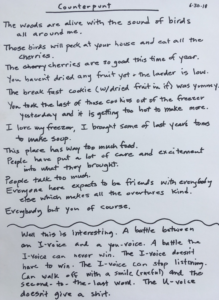 Counterpunt
6-20-18
The woods are alive with the sound of birds
all around me.
Those birds will peck at your house and eat all the
cherries.
The cherry cherries are so good this time of year.
You haven't dried any fruit yet & the larder is low.
The break fast cookie (w/dried fruit in it) was yummy.
You took the last of those cookies out of the freezer
yesterday and it is getting too hot to make more.
I love my freezer, I brought some of last years toms
to make soup.
This place has way too much food.
People have put a lot of care and excitement
into what they brought.
People talk too much.
Everyone here expects to be friends with everybody
else which makes all the overtures kind.
Everybody but you of course.
Was this is interesting. A battle between
an I-voice and a you-voice. A battle the
I-voice can never win. The I-voice doesn't
have to win. The I-voice can stop listening.
Can walk off with a smile (rueful) and the
second-to-the-last word. The U-voice
doesn't give a shit.